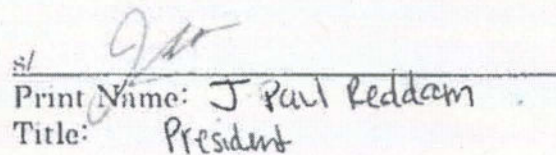 s/
Print Name: J Paul Reddam
Title: President